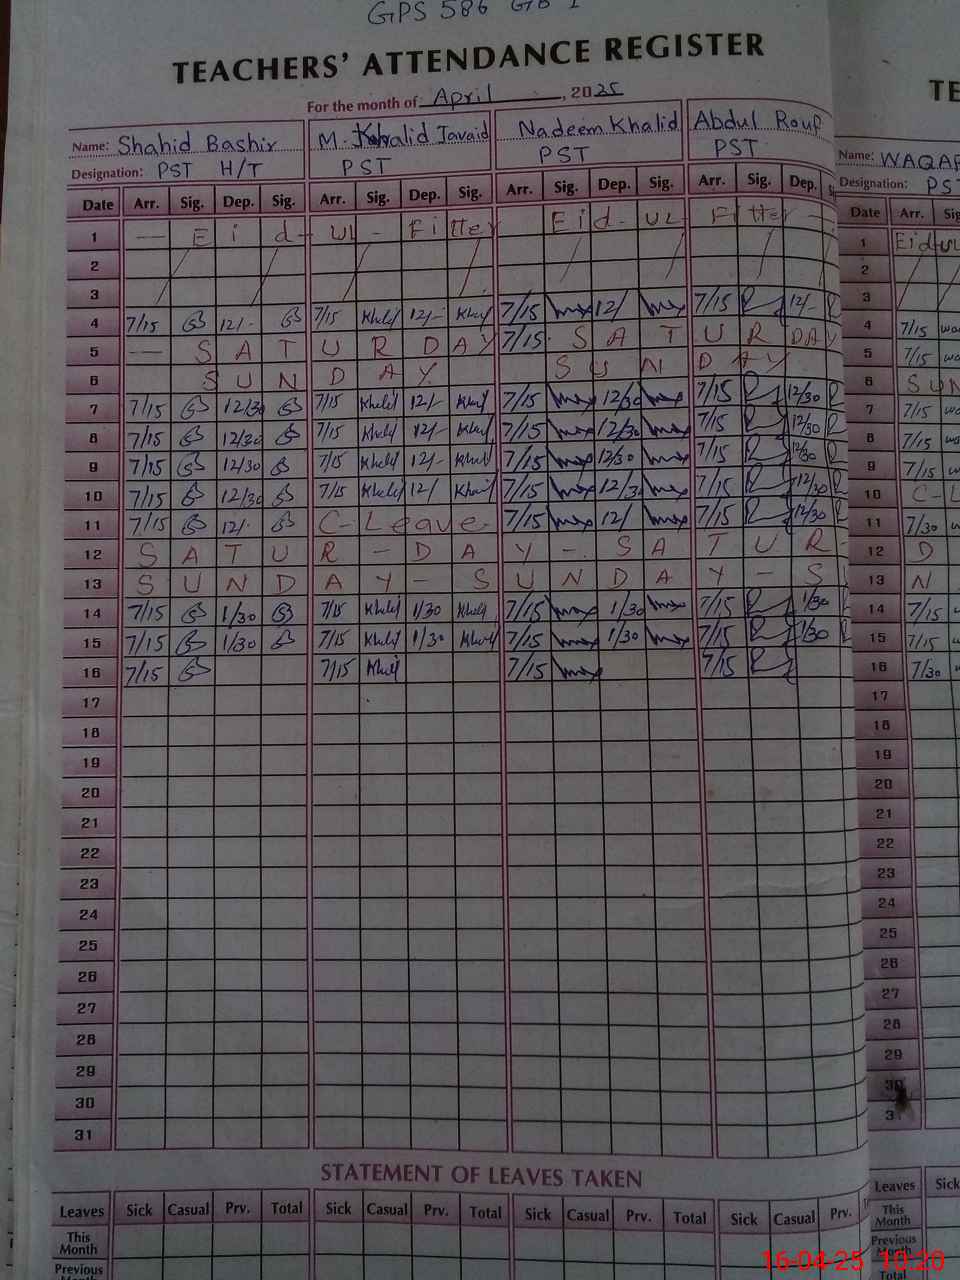 GPS 586 GB 1
TEACHERS' ATTENDANCE REGISTER
TE
For the month of April, 2025
Name: Shahid Bashir M. Khalid Javaid Nadeem Khalid Abdul Rouf Name: WAQAR
Designation: PST H/T PST PST PST Designation: PST
Date Arr. Sig. Dep. Sig. Arr. Sig. Dep. Sig. Arr. Sig. Dep. Sig. Arr. Sig. Dep. Date Arr. Sig
1 — Eid - UL - Fitter Eid - UL Fitter - 1 Eid-UL
2 2
3 3
4 7/15 12/- 7/15 Khalid 12/- Khalid 7/15 12/ 7/15 12/- 4 7/15
5 — SATURDAY 7/15. SATURDAY 5 7/15
6 SUNDAY SUNDAY 6 SUN
7 7/15 12/30 7/15 Khalid 12/- Khalid 7/15 12/30 7/15 12/30 7 7/15
8 7/15 12/30 7/15 Khalid 12/- Khalid 7/15 12/30 7/15 12/30 8 7/15
9 7/15 12/30 7/15 Khalid 12/- Khalid 7/15 12/30 7/15 12/30 9 7/15
10 7/15 12/30 7/15 Khalid 12/ Khalid 7/15 12/3 7/15 12/30 10 C-L
11 7/15 12/- C-Leave 7/15 12/ 7/15 12/30 11 7/30
12 SATUR-DAY-SATUR- 12 D
13 SUNDAY-SUNDAY-S 13 N
14 7/15 1/30 7/15 Khalid 1/30 Khalid 7/15 1/30 7/15 1/30 14 7/15
15 7/15 1/30 7/15 Khalid 1/30 Khalid 7/15 1/30 7/15 1/30 15 7/15
16 7/15 7/15 Khalid 7/15 7/15 16 7/30
17 17
18 18
19 19
20 20
21 21
22 22
23 23
24 24
25 25
26 26
27 27
28 28
29 29
30 30
31 31
STATEMENT OF LEAVES TAKEN
Leaves Sick Casual Prv. Total Sick Casual Prv. Total Sick Casual Prv. Total Sick Casual Prv. Leaves Sick
This Month This Month
Previous Month Previous Month
Total
16-04-25 10:20